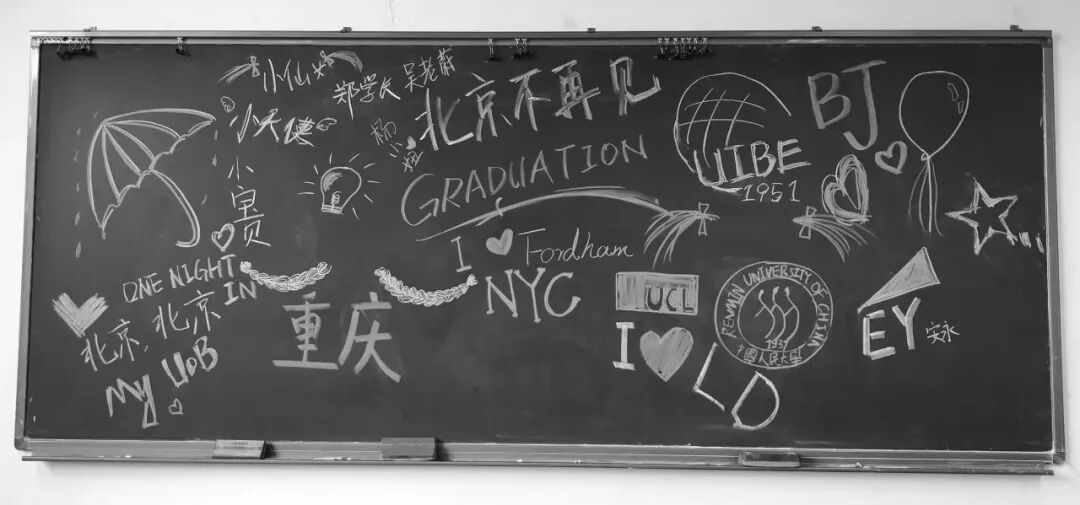 小仙女
郑学长
北京不再见
小天使
GRADUATION
BJ
UIBE
1951
I Fordham
NYC
ONE NIGHT
IN
北京, 北京
My UoB
重庆
UCL
I
LD
RENMIN UNIVERSITY OF CHINA
1937
中國人民大學
EY 安永